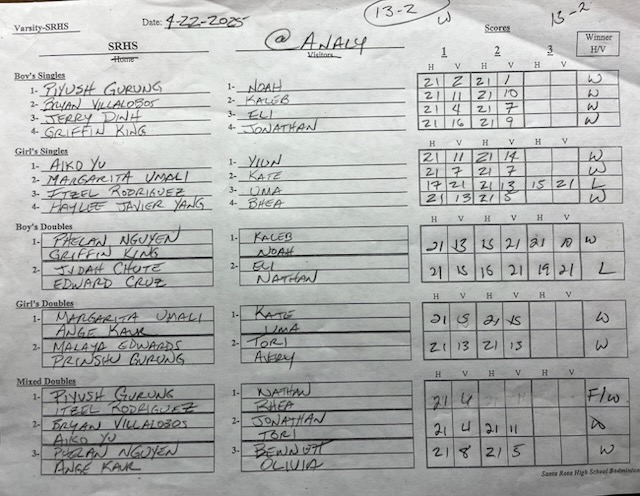 13-2 W 13-2
Varsity-SRHS Date: 4-22-2025 Scores
SRHS @ ANALY 1 2 3 Winner
Home Visitors H V H V H V H/V
Boy's Singles
1- PIYUSH GURUNG 1- NOAH 21 2 21 1 W
2- BRYAN VILLALOBOS 2- KALEB 21 11 21 10 W
3- JERRY DINH 3- ELI 21 4 21 7 W
4- GRIFFIN KING 4- JONATHAN 21 16 21 9 W
Girl's Singles H V H V H V
1- AIKO YU 1- 21 11 21 14 W
2- MARGARITA UMALI 2- KATE 21 7 21 7 W
3- ITZEL RODRIGUEZ 3- UMA 17 21 21 13 15 21 L
4- HAYLEE JAVIER YANG 4- RHEA 21 13 21 5 W
Boy's Doubles H V H V H V
1- PHELAN NGUYEN 1- KALEB 21 13 15 21 21 10 W
GRIFFIN KING NOAH
2- JUDAH CHUTE 2- ELI 21 15 16 21 19 21 L
EDWARD CRUZ NATHAN
Girl's Doubles H V H V H V
1- MARGARITA UMALI 1- KATE 21 21 15 W
ANGE KAUR UMA
2- MALAYA EDWARDS 2- TORI 21 13 21 13 W
PRINSHU GURUNG AVERY
Mixed Doubles H V H V H V
1- PIYUSH GURUNG 1- NATHAN 21 F/W
ITZEL RODRIGUEZ RHEA
2- BRYAN VILLALOBOS 2- JONATHAN 21 4 21 11
AIKO YU TORI
3- PHELAN NGUYEN 3- BENNETT 21 8 21 5 W
ANGE KAUR OLIVIA
Santa Rosa High School Badminton